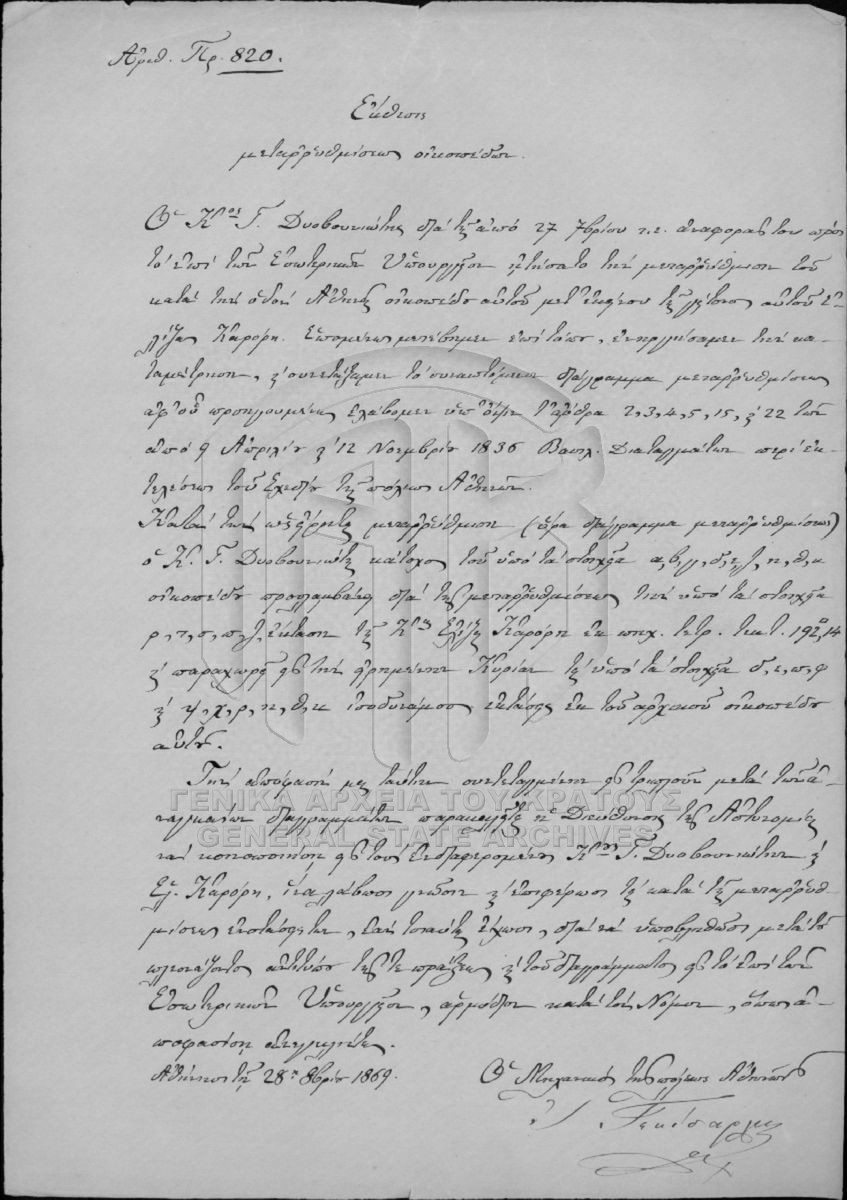 Ἀριθ. Πρ. 820.
Ἔκθεσις
μεταῤῥυθμίσεως οἰκοπέδων.
Ὁ Κ<sup>ος</sup> Γ. Δυοβουνιώτης διὰ τῆς ἀπὸ 27 7βρίου τ.ἔ. ἀναφορᾶς του πρὸς
τὸ ἐπὶ τῶν Ἐσωτερικῶν Ὑπουργεῖον ᾐτήσατο τὴν μεταῤῥύθμισιν τοῦ
κατὰ τὴν ὁδὸν Ἀθηνᾶς οἰκοπέδου αὐτοῦ μετ' ἐκείνου τῆς γείτονος αὐτοῦ Ἐ-
λίζας Καρόρη. Ἑπομένως μετέβημεν ἐπὶ τόπου, ἐνηργήσαμεν τὴν κα-
ταμέτρησιν, καὶ συνετάξαμεν τὸ συναπτόμενον διάγραμμα μεταῤῥυθμίσεως
ἀφ' οὗ προηγουμένως ἐλάβομεν ὑπ' ὄψιν τὰ ἄρθρα 2, 3, 4, 5, 15, καὶ 22 τῶν
ἀπὸ 9 Ἀπριλίου καὶ 12 Νοεμβρίου 1836 Βασιλ. Διαταγμάτων περὶ ἐκ-
τελέσεως τοῦ Σχεδίου τῆς πόλεως Ἀθηνῶν.
Κατὰ τὴν μεταῤῥύθμισιν (ὅρα διάγραμμα μεταῤῥυθμίσεως)
ὁ Κ. Γ. Δυοβουνιώτης κάτοχος τοῦ ὑπὸ τὰ στοιχεῖα α, β, γ, δ, ε, ζ, η, θ, κ
οἰκοπέδου προσλαμβάνει διὰ τῆς μεταῤῥυθμίσεως τὴν ὑπὸ τὰ στοιχεῖα
ρ, τ, σ, π, ζ, ἔκτασιν τῆς Κ<sup>ας</sup> Ἐλίζης Καρόρη ἐκ πηχ. τετρ. τεκτ. 192,14
καὶ παραχωρεῖ εἰς τὴν εἰρημένην Κυρίαν τὰς ὑπὸ τὰ στοιχεῖα δ, ε, π, φ
καὶ ψ, χ, ρ, η, θ, κ ἰσοδυνάμους ἐκτάσεις ἐκ τοῦ ἀρχικοῦ οἰκοπέδου
αὐτοῦ.
Τὴν ἀπόφασίν μας ταύτην συντεταγμένην εἰς τριπλοῦν μετὰ τῶν ἀ-
ναγκαίων διαγραμμάτων παρακαλεῖται ἡ Διεύθυνσις τῆς Ἀστυνομίας
νὰ κοινοποιήσῃ εἰς τοὺς ἐνδιαφερομένους Κ<sup>ους</sup> Γ. Δυοβουνιώτην καὶ
Ἐλ. Καρόρη, ἵνα λάβωσι γνῶσιν καὶ ἐπιφέρωσι τὰς κατὰ τῆς μεταῤῥυθ-
μίσεως ἐνστάσεις των, ἐὰν τοιαύτας ἔχωσι, διὰ νὰ ὑποβληθῶσι μετὰ τοῦ
πλεονάζοντος ἀντιτύπου τῆς τε πράξεως καὶ τοῦ διαγράμματος εἰς τὸ ἐπὶ τῶν
Ἐσωτερικῶν Ὑπουργεῖον, ἁρμόδιον κατὰ τὸν Νόμον, ὅπως ἀ-
ποφασίσῃ ἀνεκκλήτως.
Ἀθήνησι τῇ 28<sup>ῃ</sup> 8βρίου 1869.
Ὁ Μηχανικὸς τῆς πόλεως Ἀθηνῶν
ΓΕΝΙΚΑ ΑΡΧΕΙΑ ΤΟΥ ΚΡΑΤΟΥΣ
GENERAL STATE ARCHIVES